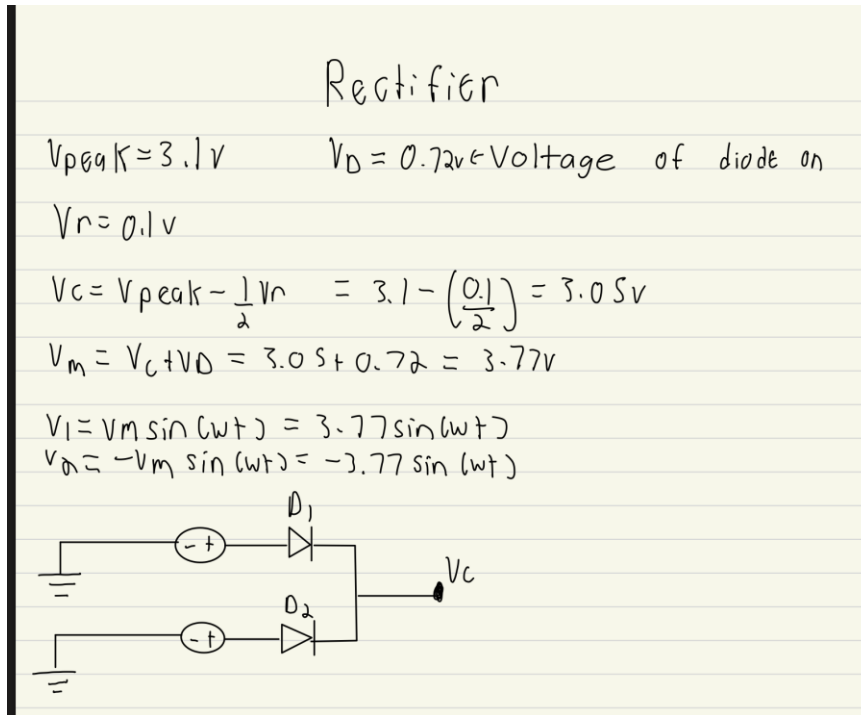 Rectifier
Vpeak=3.1V VD = 0.72v←Voltage of diode on
Vr=0.1v
Vc= Vpeak-1/2 Vr = 3.1-(0.1/2) = 3.05v
Vm = Vc+VD = 3.05+0.72 = 3.77V
V1= Vm sin(wt) = 3.77sin(wt)
V2= -Vm sin(wt)= -3.77 sin(wt)
D1
- +
Vc
D2
- +